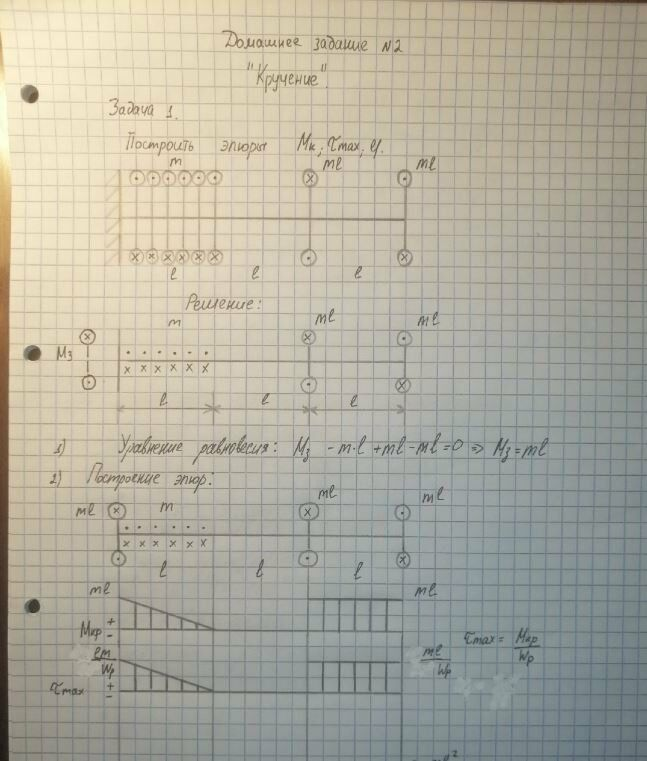 Домашнее задание N2
"Кручение".
Задача 1.
Построить эпюры Mк; τmax; φ.
m ml ml
l l l
Решение:
m ml ml
Mз
l l l
1) Уравнение равновесия: Mз - m·l + ml - ml = 0 => Mз = ml
2) Построение эпюр:
ml m ml ml
l l l
ml ml
Mкр + -
lm/Wp ml/Wp τmax = Mкр/Wp
τmax + -